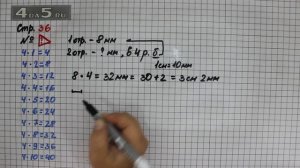 4DA5.RU
Стр. 36
№ 1
1 отр. - 8 мм
2 отр. - ? мм, в 4 р. б.
1см = 10мм
8 · 4 = 32 мм = 30 + 2 = 3 см 2 мм
4 · 1 = 4
4 · 2 = 8
4 · 3 = 12
4 · 4 = 16
4 · 5 = 20
4 · 6 = 24
4 · 7 = 28
4 · 8 = 32
4 · 9 = 36
4 · 10 = 40